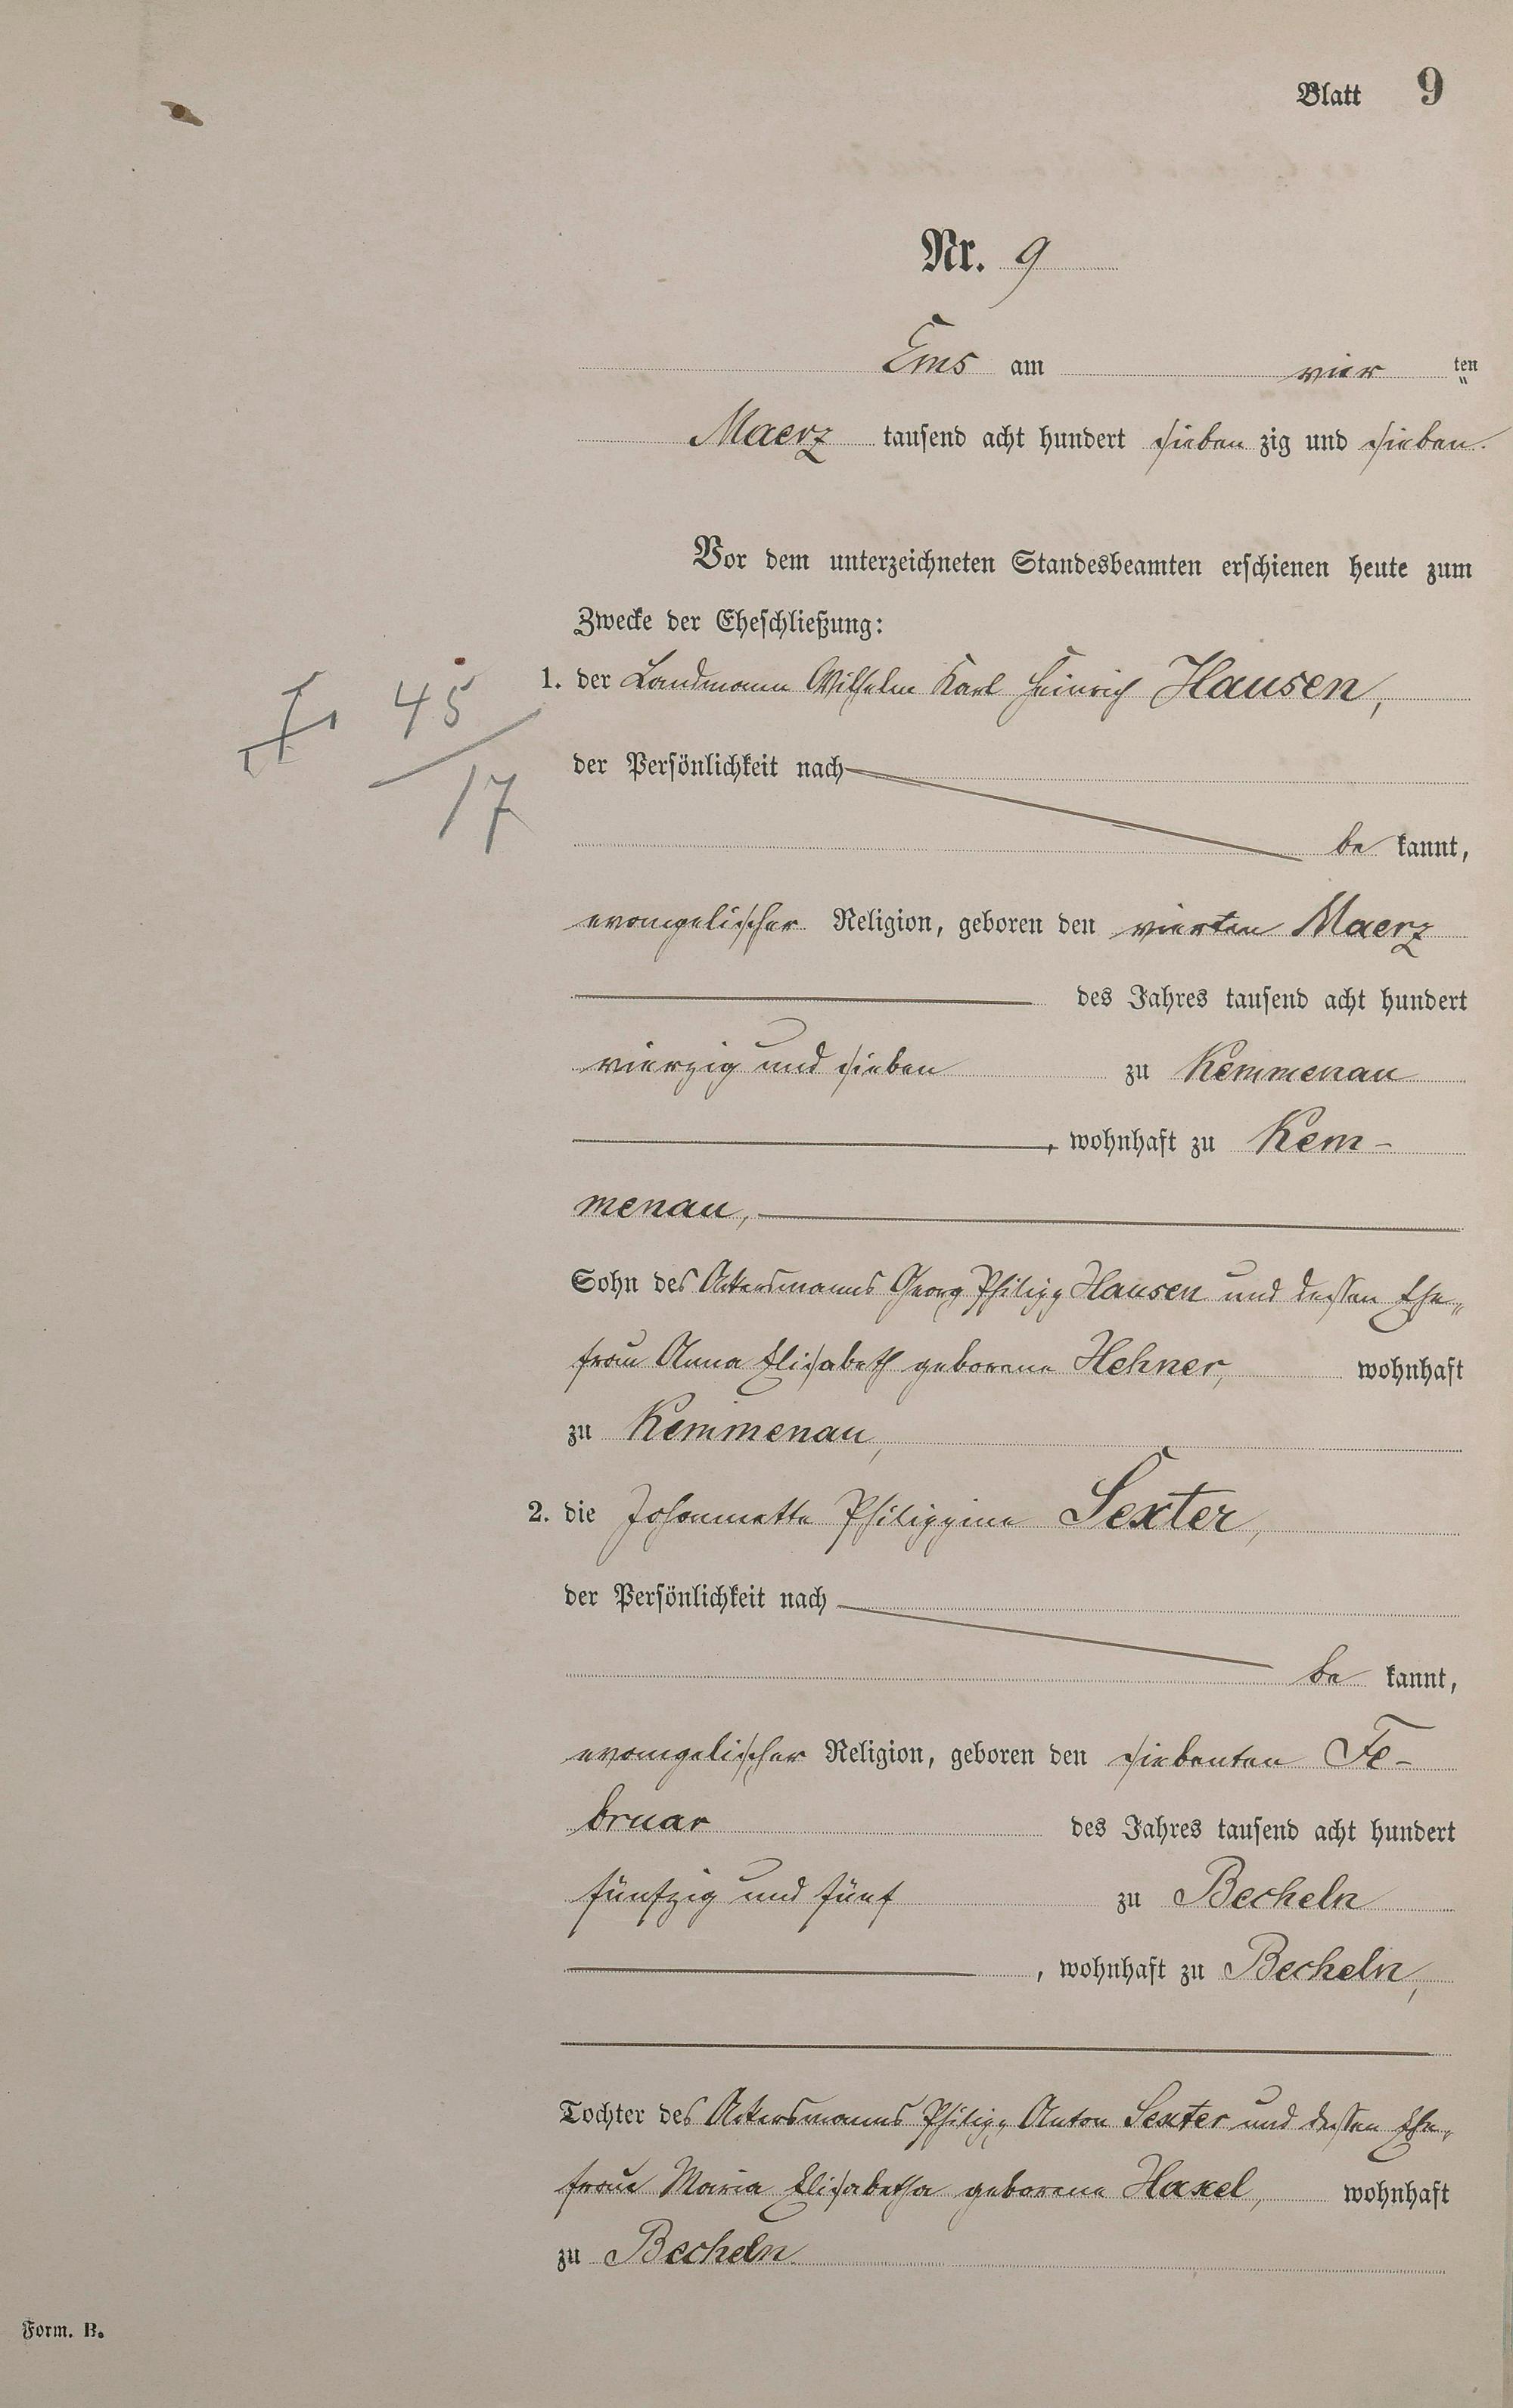 Blatt 9
Nr. 9
Ems am vier ten
Maerz tausend acht hundert sieben zig und sieben.
Vor dem unterzeichneten Standesbeamten erschienen heute zum
Zwecke der Eheschließung:
1. der Landmann Wilhelm Karl Heinrich Hausen,
45
17
der Persönlichkeit nach
be kannt,
evangelischer Religion, geboren den vierten Maerz
des Jahres tausend acht hundert
vierzig und sieben zu Kemmenau
, wohnhaft zu Kem-
menau,
Sohn des Ackersmanns Georg Philipp Hausen und dessen Ehe„
frau Anna Elisabeth geborene Hehner, wohnhaft
zu Kemmenau,
2. die Johannette Philippine Sexter,
der Persönlichkeit nach
be kannt,
evangelischer Religion, geboren den siebenten Fe-
bruar des Jahres tausend acht hundert
fünfzig und fünf zu Becheln
, wohnhaft zu Becheln,
Tochter des Ackersmanns Philipp Anton Sexter und dessen Ehe„
frau Maria Elisabetha geborene Haxel, wohnhaft
zu Becheln.
Form. B.